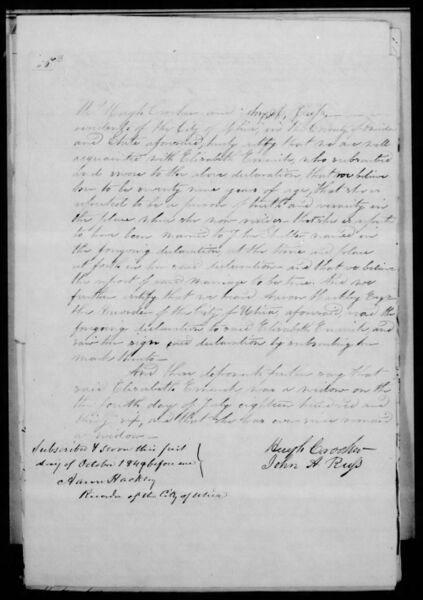 We Hugh Crocker and John A. Russ,
residents of the City of Utica, in the County of Oneida
and State aforesaid, hereby certify that we are well
acquainted with Elizabeth who subscribed
and swore to the above declaration that we believe
her to be seventy nine years of age, that she is
reputed to be a person of truth and veracity in
the place where she now resides that she is reputed
to have been married to the named in
the foregoing declaration at the time and place
set forth in her said declaration and that we believe
the report of said marriage to be true. And we
further certify that we heard Aaron Hackley Esqr
the Recorder of the City of Utica aforesaid, read the
foregoing declaration to said Elizabeth and
saw her sign said declaration by subscribing her
mark thereto.
And these deponents further say that
said Elizabeth was a widow on the
the fourth day of July eighteen hundred and
thirty six, and that she has ever since remained
a widow
Subscribed & sworn this first
day of October 1849 before me
Aaron Hackley
Recorder of the City of Utica
Hugh Crocker
John A Russ